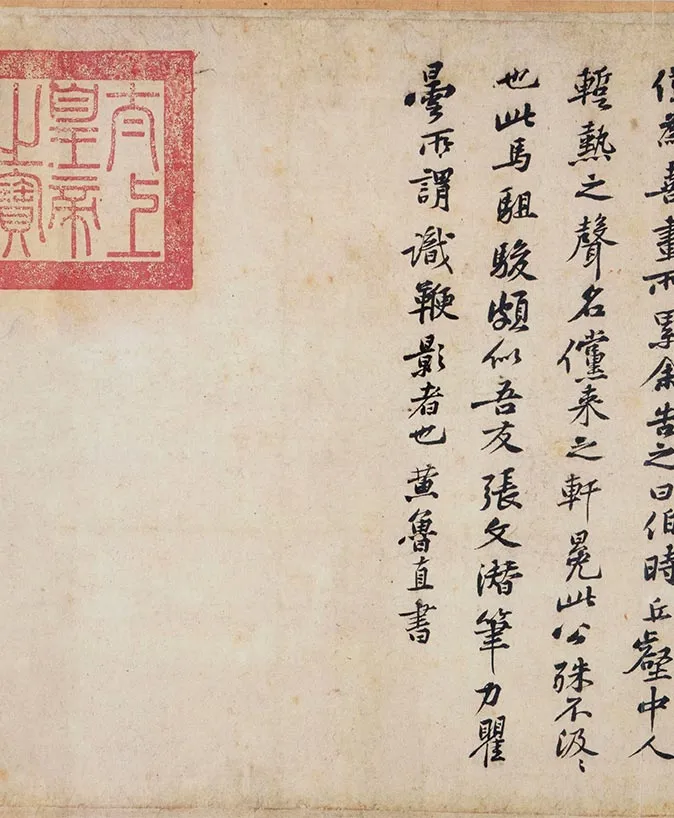 僅為善畫所累余告之曰伯時丘壑中人
暫熱之聲名儻來之軒冕此公殊不汲〻
也此馬駔駿頗似吾友張文潛筆力瞿
曇所謂識鞭影者也黃魯直書
太上
皇帝
之寶